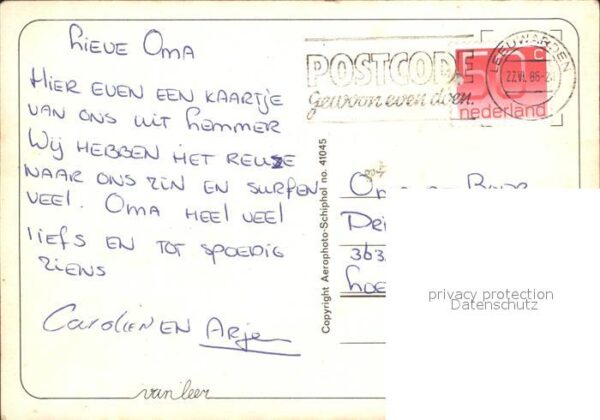 Lieve Oma
Hier even een kaartje
van ons uit Lemmer
Wij hebben het reuze
naar ons zin en surfen
veel. Oma heel veel
liefs en tot spoedig
ziens
Carolien en Arjen
van leer
POSTCODE
Gewoon even doen.
LEEUWARDEN
22.VI. 86-20
50 c
nederland
Copyright Aerophoto-Schiphol no. 41045
363
privacy protection
Datenschutz